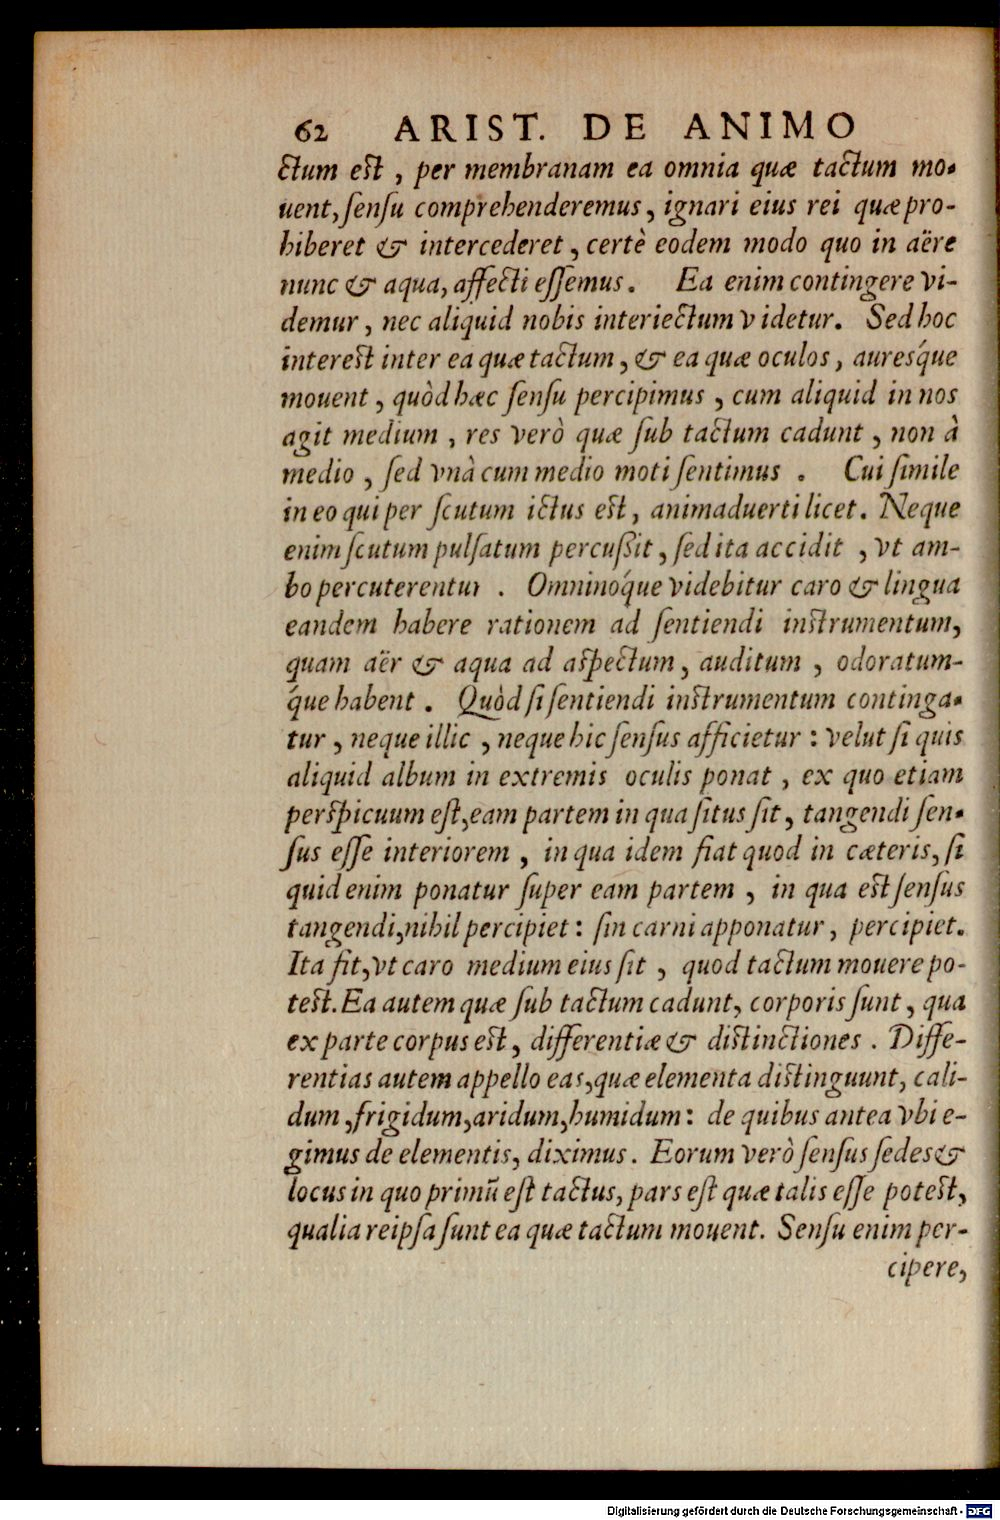 62 ARIST. DE ANIMO
ctum est, per membranam ea omnia quæ tactum mo-
uent, ſenſu comprehenderemus, ignari eius rei quæ pro-
hiberet & intercederet, certè eodem modo quo in aëre
nunc & aqua, affecti eſſemus. Ea enim contingere vi-
demur, nec aliquid nobis interiectum videtur. Sed hoc
intereſt inter ea quæ tactum, & ea quæ oculos, aureſq́ue
mouent, quòd hæc ſenſu percipimus, cum aliquid in nos
agit medium, res verò quæ ſub tactum cadunt, non à
medio, ſed vnà cum medio moti ſentimus. Cui ſimile
in eo qui per ſcutum ictus eſt, animaduerti licet. Neque
enim ſcutum pulſatum percuſſit, ſed ita accidit, vt am-
bo percuterentur. Omninoq́ue videbitur caro & lingua
eandem habere rationem ad ſentiendi inſtrumentum,
quam aër & aqua ad aſpectum, auditum, odoratum-
q́ue habent. Quòd ſi ſentiendi inſtrumentum continga-
tur, neque illic, neque hic ſenſus afficietur: velut ſi quis
aliquid album in extremis oculis ponat, ex quo etiam
perſpicuum eſt, eam partem in qua ſitus ſit, tangendi ſen-
ſus eſſe interiorem, in qua idem fiat quod in cæteris, ſi
quid enim ponatur ſuper eam partem, in qua eſt ſenſus
tangendi, nihil percipiet: ſin carni apponatur, percipiet.
Ita fit, vt caro medium eius ſit, quod tactum mouere po-
teſt. Ea autem quæ ſub tactum cadunt, corporis ſunt, qua
ex parte corpus eſt, differentiæ & diſtinctiones. Diffe-
rentias autem appello eas, quæ elementa diſtinguunt, cali-
dum, frigidum, aridum, humidum: de quibus antea vbi e-
gimus de elementis, diximus. Eorum verò ſenſus ſedes &
locus in quo primũ eſt tactus, pars eſt quæ talis eſſe poteſt,
qualia reipſa ſunt ea quæ tactum mouent. Senſu enim per-
cipere,
Digitalisierung gefördert durch die Deutsche Forschungsgemeinschaft - DFG